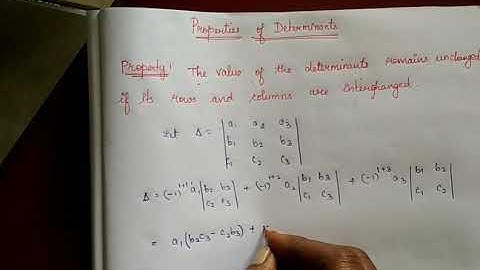 Properties of Determinants
Property 1 The value of the determinants remains unchanged
if its rows and columns are interchanged.
Let Δ = | a₁ a₂ a₃ |
| b₁ b₂ b₃ |
| c₁ c₂ c₃ |
Δ = (-1)¹⁺¹ a₁ | b₂ b₃ | + (-1)¹⁺² a₂ | b₁ b₃ | + (-1)¹⁺³ a₃ | b₁ b₂ |
| c₂ c₃ | | c₁ c₃ | | c₁ c₂ |
= a₁ (b₂c₃ - c₂b₃) +